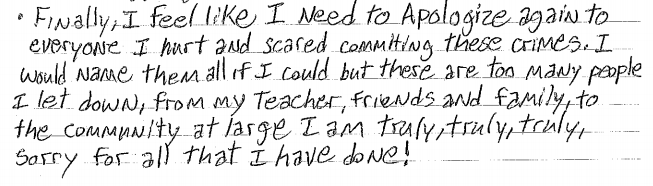 • Finally, I feel like I Need to Apologize again to
everyone I hurt and scared commiting these crimes. I
would Name them all if I could but these are too many people
I let down, from my Teacher, friends and family, to
the community at large I am truly, truly, truly,
Sorry for all that I have done!